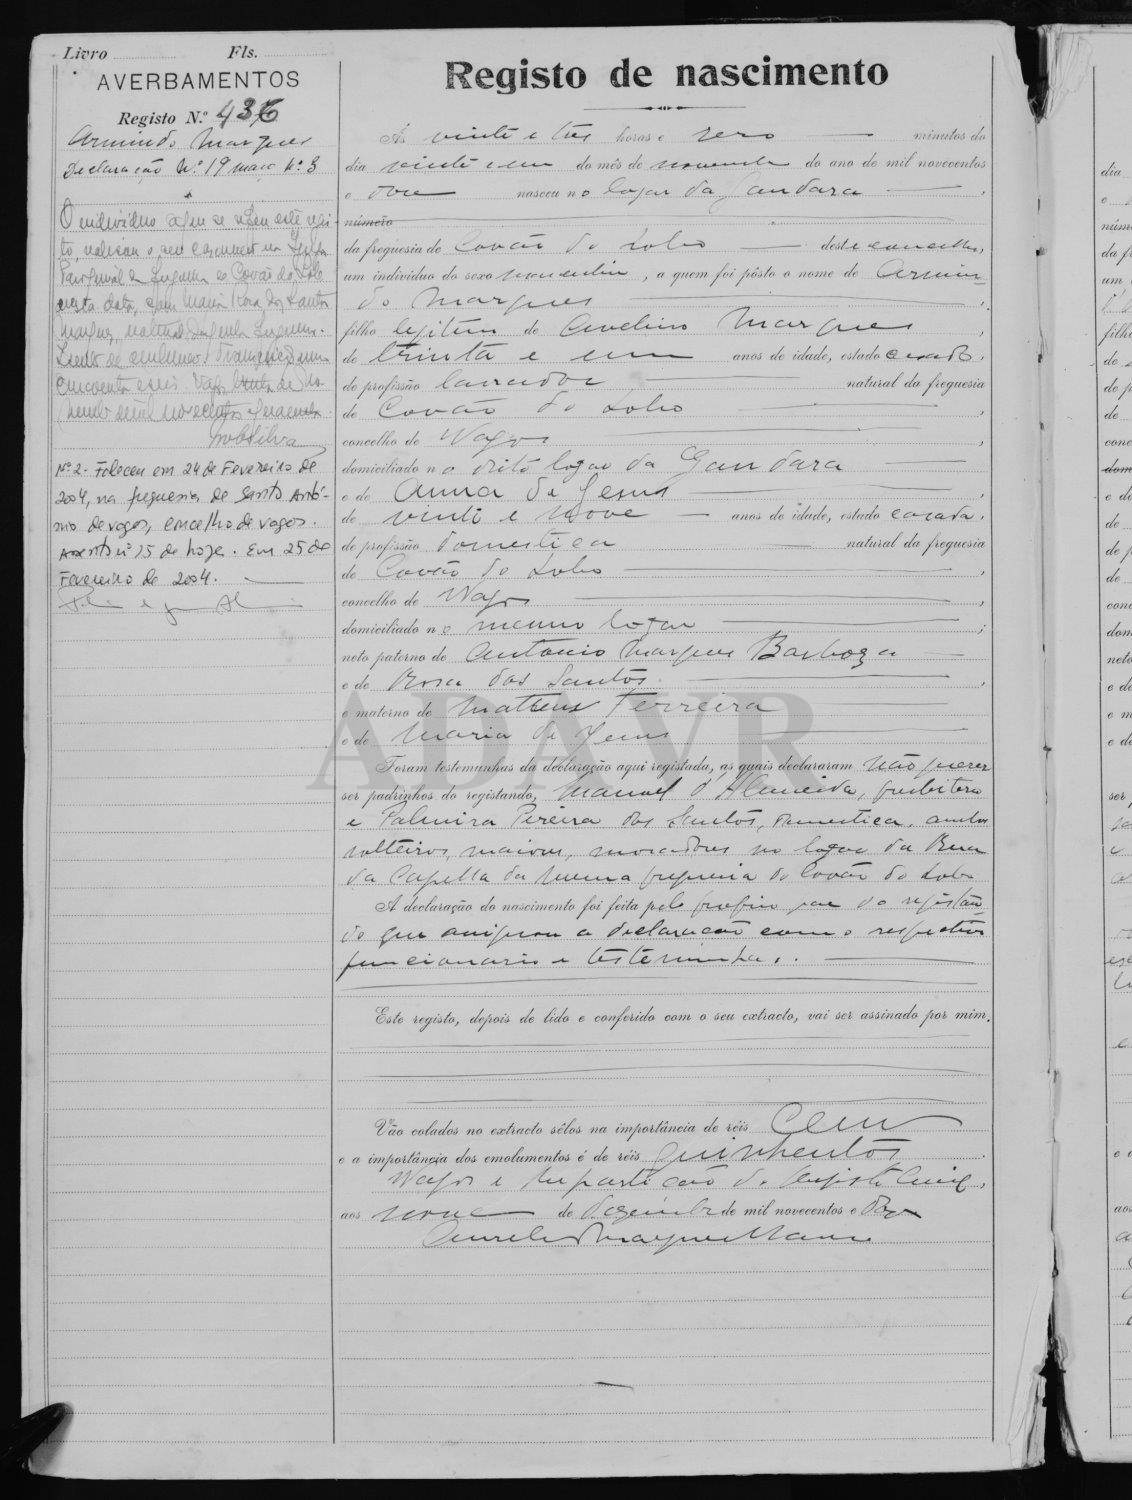 Livro Fls.
AVERBAMENTOS
Registo N.º 436
Armindo Marques
Declaração N.º 19 maço N.º 3
O individuo a que se refere este regis-
to, realisou o seu casamento na Igreja
Paroquial da freguesia de Covão do Lobo
nesta data, com Maria Rosa dos Santos
Marques, natural daquela freguesia.
cincoenta e seis. Vagos, de No-
vembro de mil novecentos e quarenta.
Silva
Nº 2 - Faleceu em 24 de Fevereiro de
2004, na freguesia de Santo Antó-
nio de Vagos, concelho de Vagos.
Assento nº 15 de hoje. Em 25 de
Fevereiro de 2004.
Registo de nascimento
Ás vinte e três horas e zero minutos do
dia vinte e um do mês de novembro do ano de mil novecentos
e doze nasceu no logar da Gandara
número
da freguesia de Covão do Lobo deste concelho,
um individuo do sexo masculin, a quem foi pôsto o nome de Armin-
do Marques
filho legitimo de Avelino Marques,
de trinta e um anos de idade, estado casado,
de profissão lavrador natural da freguesia
de Covão do Lobo,
concelho de Vagos,
domiciliado no dito logar da Gandara
e de Anna de Jesus,
de vinte e nove anos de idade, estado casada,
de profissão domestica natural da freguesia
de Covão do Lobo,
concelho de Vagos,
domiciliado no mesmo logar;
neto paterno de Antonio Marques Barboza
e de Rosa dos Santos,
e materno de Matheus Ferreira
e de Maria de Jesus
ADAVR
Foram testemunhas da declaração aqui registada, as quais declararam não querer
ser padrinhos do registando, Manuel d'Almeida, presbitero
e Palmira Pereira dos Santos, domestica, ambos
solteiros, maiores, moradores no logar da Rua
da Capella da mesma freguesia de Covão do Lobo
A declaração do nascimento foi feita pelo proprio pae do registan-
do que assignou a declaração com o respectivo
funcionario e testemunhas.
Este registo, depois de lido e conferido com o seu extracto, vai ser assinado por mim.
Vão colados no extracto sêlos na importância de réis Cem
e a importância dos emolumentos é de réis quinhentos
Vagos e Repartição do Registo Civil,
aos nove de Dezembro de mil novecentos e doze